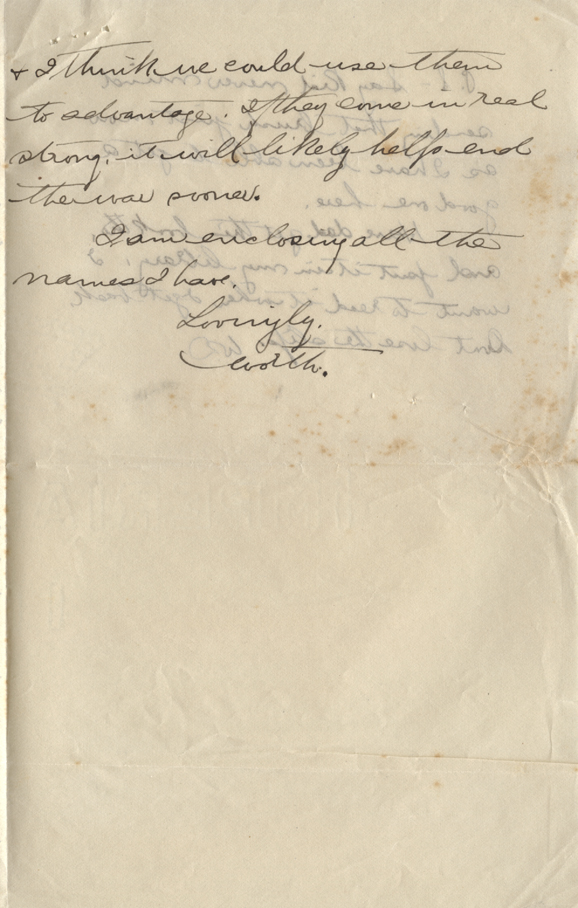 + I think we could use them
to advantage. If they come in real
strong, it will likely help end
the war sooner.
I am enclosing all the
names I have.
Lovingly.
Worth.